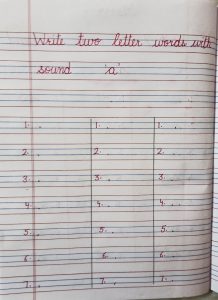 Write two letter words with
sound 'a'
1. . 1. . 1. .
2. . 2. . 2. .
3. . 3. . 3. .
4. . 4. . 4. .
5. . 5. . 5. .
6. . 6. . 6. .
7. . 7. . 7. .